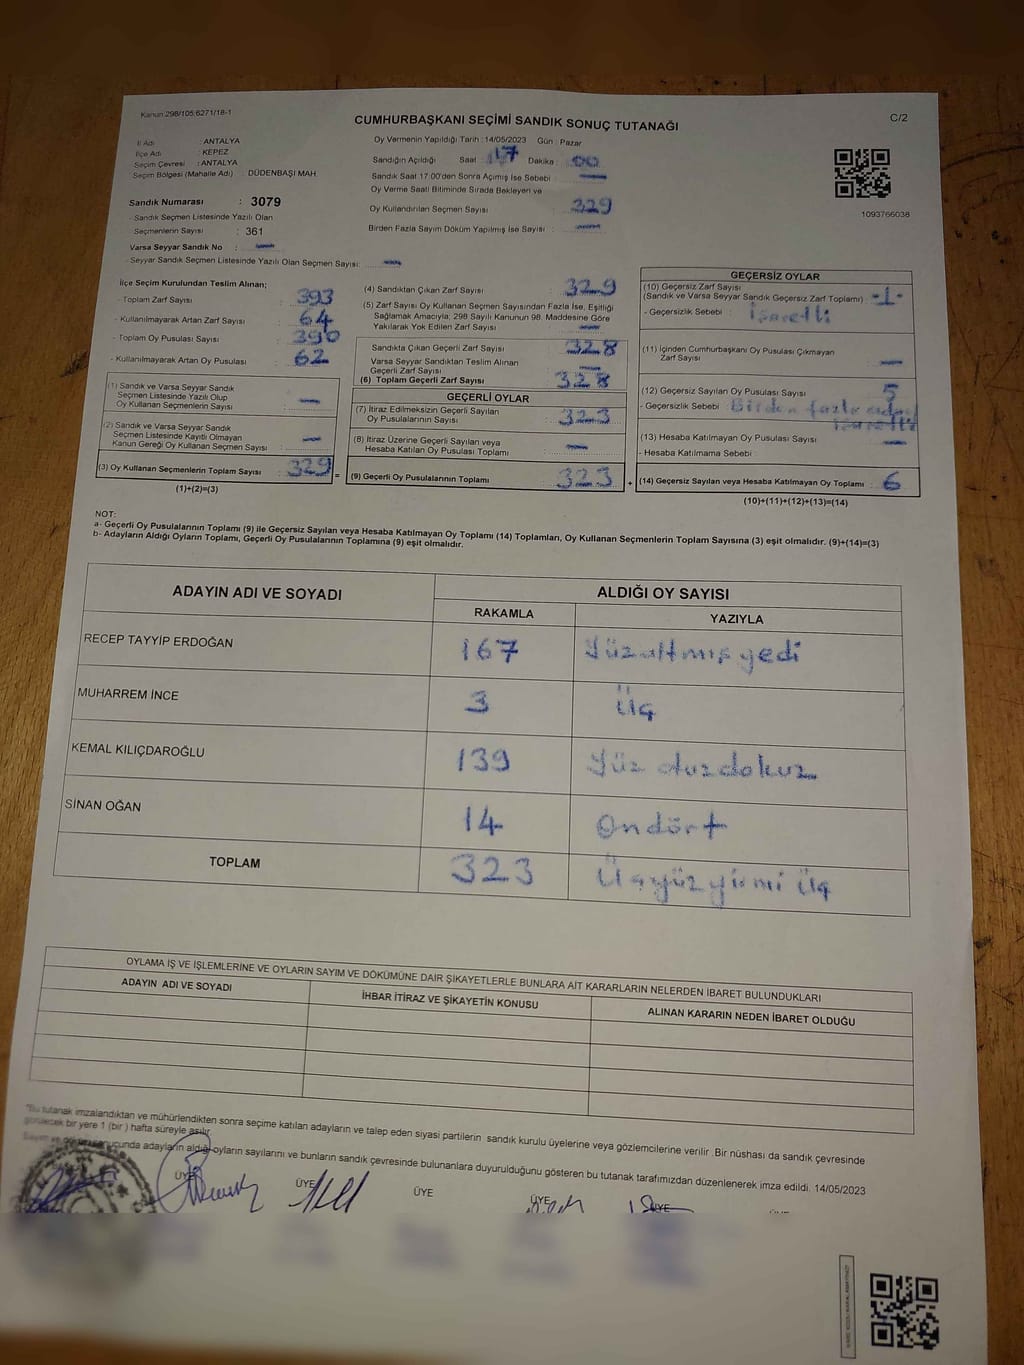 Kanun 298/105:6271/18-1
CUMHURBAŞKANI SEÇİMİ SANDIK SONUÇ TUTANAĞI
C/2
İl Adı : ANTALYA
İlçe Adı : KEPEZ
Seçim Çevresi : ANTALYA
Seçim Bölgesi (Mahalle Adı) : DÜDENBAŞI MAH.
Sandık Numarası : 3079
- Sandık Seçmen Listesinde Yazılı Olan
Seçmenlerin Sayısı : 361
Varsa Seyyar Sandık No : —
- Seyyar Sandık Seçmen Listesinde Yazılı Olan Seçmen Sayısı: —
Oy Vermenin Yapıldığı Tarih : 14/05/2023 Gün : Pazar
Sandığın Açıldığı Saat 17 Dakika : 00
Sandık Saat 17:00'den Sonra Açımış İse Sebebi : —
Oy Verme Saati Bitiminde Sırada Bekleyen ve
Oy Kullandırılan Seçmen Sayısı : 329
Birden Fazla Sayım Döküm Yapılmış İse Sayısı : —
1093766038
İlçe Seçim Kurulundan Teslim Alınan;
- Toplam Zarf Sayısı : 393
- Kullanılmayarak Artan Zarf Sayısı : 64
- Toplam Oy Pusulası Sayısı : 390
- Kullanılmayarak Artan Oy Pusulası : 62
(1) Sandık ve Varsa Seyyar Sandık
Seçmen Listesinde Yazılı Olup
Oy Kullanan Seçmenlerin Sayısı : —
(2) Sandık ve Varsa Seyyar Sandık
Seçmen Listesinde Kayıtlı Olmayan
Kanun Gereği Oy Kullanan Seçmen Sayısı : —
(3) Oy Kullanan Seçmenlerin Toplam Sayısı : 329 =
(1)+(2)=(3)
(4) Sandıktan Çıkan Zarf Sayısı : 329
(5) Zarf Sayısı Oy Kullanan Seçmen Sayısından Fazla İse, Eşitliği
Sağlamak Amacıyla; 298 Sayılı Kanunun 98. Maddesine Göre
Yakılarak Yok Edilen Zarf Sayısı : —
Sandıkta Çıkan Geçerli Zarf Sayısı : 328
Varsa Seyyar Sandıktan Teslim Alınan
Geçerli Zarf Sayısı : —
(6) Toplam Geçerli Zarf Sayısı : 328
GEÇERLİ OYLAR
(7) İtiraz Edilmeksizin Geçerli Sayılan
Oy Pusulalarının Sayısı : 323
(8) İtiraz Üzerine Geçerli Sayılan veya
Hesaba Katılan Oy Pusulası Toplamı : —
(9) Geçerli Oy Pusulalarının Toplamı : 323 +
GEÇERSİZ OYLAR
(10) Geçersiz Zarf Sayısı
(Sandık ve Varsa Seyyar Sandık Geçersiz Zarf Toplamı) : -1-
- Geçersizlik Sebebi : İşaretli
(11) İçinden Cumhurbaşkanı Oy Pusulası Çıkmayan
Zarf Sayısı : —
(12) Geçersiz Sayılan Oy Pusulası Sayısı : 5
- Geçersizlik Sebebi : Birden fazla
(13) Hesaba Katılmayan Oy Pusulası Sayısı : —
- Hesaba Katılmama Sebebi :
(14) Geçersiz Sayılan veya Hesaba Katılmayan Oy Toplamı : 6
(10)+(11)+(12)+(13)=(14)
NOT:
a- Geçerli Oy Pusulalarının Toplamı (9) ile Geçersiz Sayılan veya Hesaba Katılmayan Oy Toplamı (14) Toplamları, Oy Kullanan Seçmenlerin Toplam Sayısına (3) eşit olmalıdır. (9)+(14)=(3)
b- Adayların Aldığı Oyların Toplamı, Geçerli Oy Pusulalarının Toplamına (9) eşit olmalıdır.
ADAYIN ADI VE SOYADI
ALDIĞI OY SAYISI
RAKAMLA YAZIYLA
RECEP TAYYİP ERDOĞAN 167 Yüzaltmış yedi
MUHARREM İNCE 3 Üç
KEMAL KILIÇDAROĞLU 139 Yüz otuzdokuz
SİNAN OĞAN 14 Ondört
TOPLAM 323 Üçyüz yirmi üç
OYLAMA İŞ VE İŞLEMLERİNE VE OYLARIN SAYIM VE DÖKÜMÜNE DAİR ŞİKAYETLERLE BUNLARA AİT KARARLARIN NELERDEN İBARET BULUNDUKLARI
ADAYIN ADI VE SOYADI İHBAR İTİRAZ VE ŞİKAYETİN KONUSU ALINAN KARARIN NEDEN İBARET OLDUĞU
"Bu tutanak imzalandıktan ve mühürlendikten sonra seçime katılan adayların ve talep eden siyasi partilerin sandık kurulu üyelerine veya gözlemcilerine verilir. Bir nüshası da sandık çevresinde
görülecek bir yere 1 (bir ) hafta süreyle asılır.
Sayım ve döküm sonucunda adayların aldığı oyların sayılarını ve bunların sandık çevresinde bulunanlara duyurulduğunu gösteren bu tutanak tarafımızdan düzenlenerek imza edildi. 14/05/2023
ÜYE ÜYE ÜYE ÜYE ÜYE